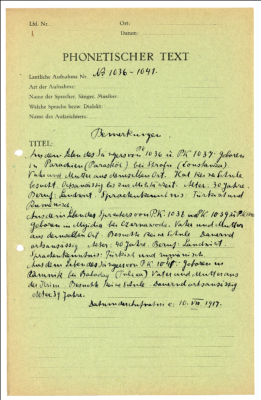 Lfd. Nr.
Ort:
1
Datum:
PHONETISCHER TEXT
Lautliche Aufnahme Nr. № 1036 - 1041.
Art der Aufnahme:
Name der Sprecher, Sänger, Musiker:
Welche Sprache bezw. Dialekt:
Name des Aufzeichners:
Bemerkungen.
TITEL:
Aus dem Leben des Sängers von PK 1036 u. PK 1037. Geboren
in bei (Constanza).
Vater und Mutter aus demselben Ort. Hat keine Schule
besucht. Ortsansässig bis zur Alter: 30 Jahre.
Beruf: Landwirt. Sprachenkenntnis: Türkisch und
Rumänisch.
Aus dem Leben des Sprechers von PK. 1038 und PK 1039
Geboren in bei Vater und Mutter
aus demselben Ort. Besuchte keine Schule. Dauernd
ortsansässig. Alter: 40 Jahre. Beruf: Landwirt.
Sprachenkenntnis: Türkisch und rumänisch.
Aus dem Leben des Sängers von PK. Geboren in
bei Babadag Vater und Mutter aus
Besuchte keine Schule. Dauernd ortsansässig
Alter 39 Jahre.
Datum der Aufnahme: 10. VII 1917.